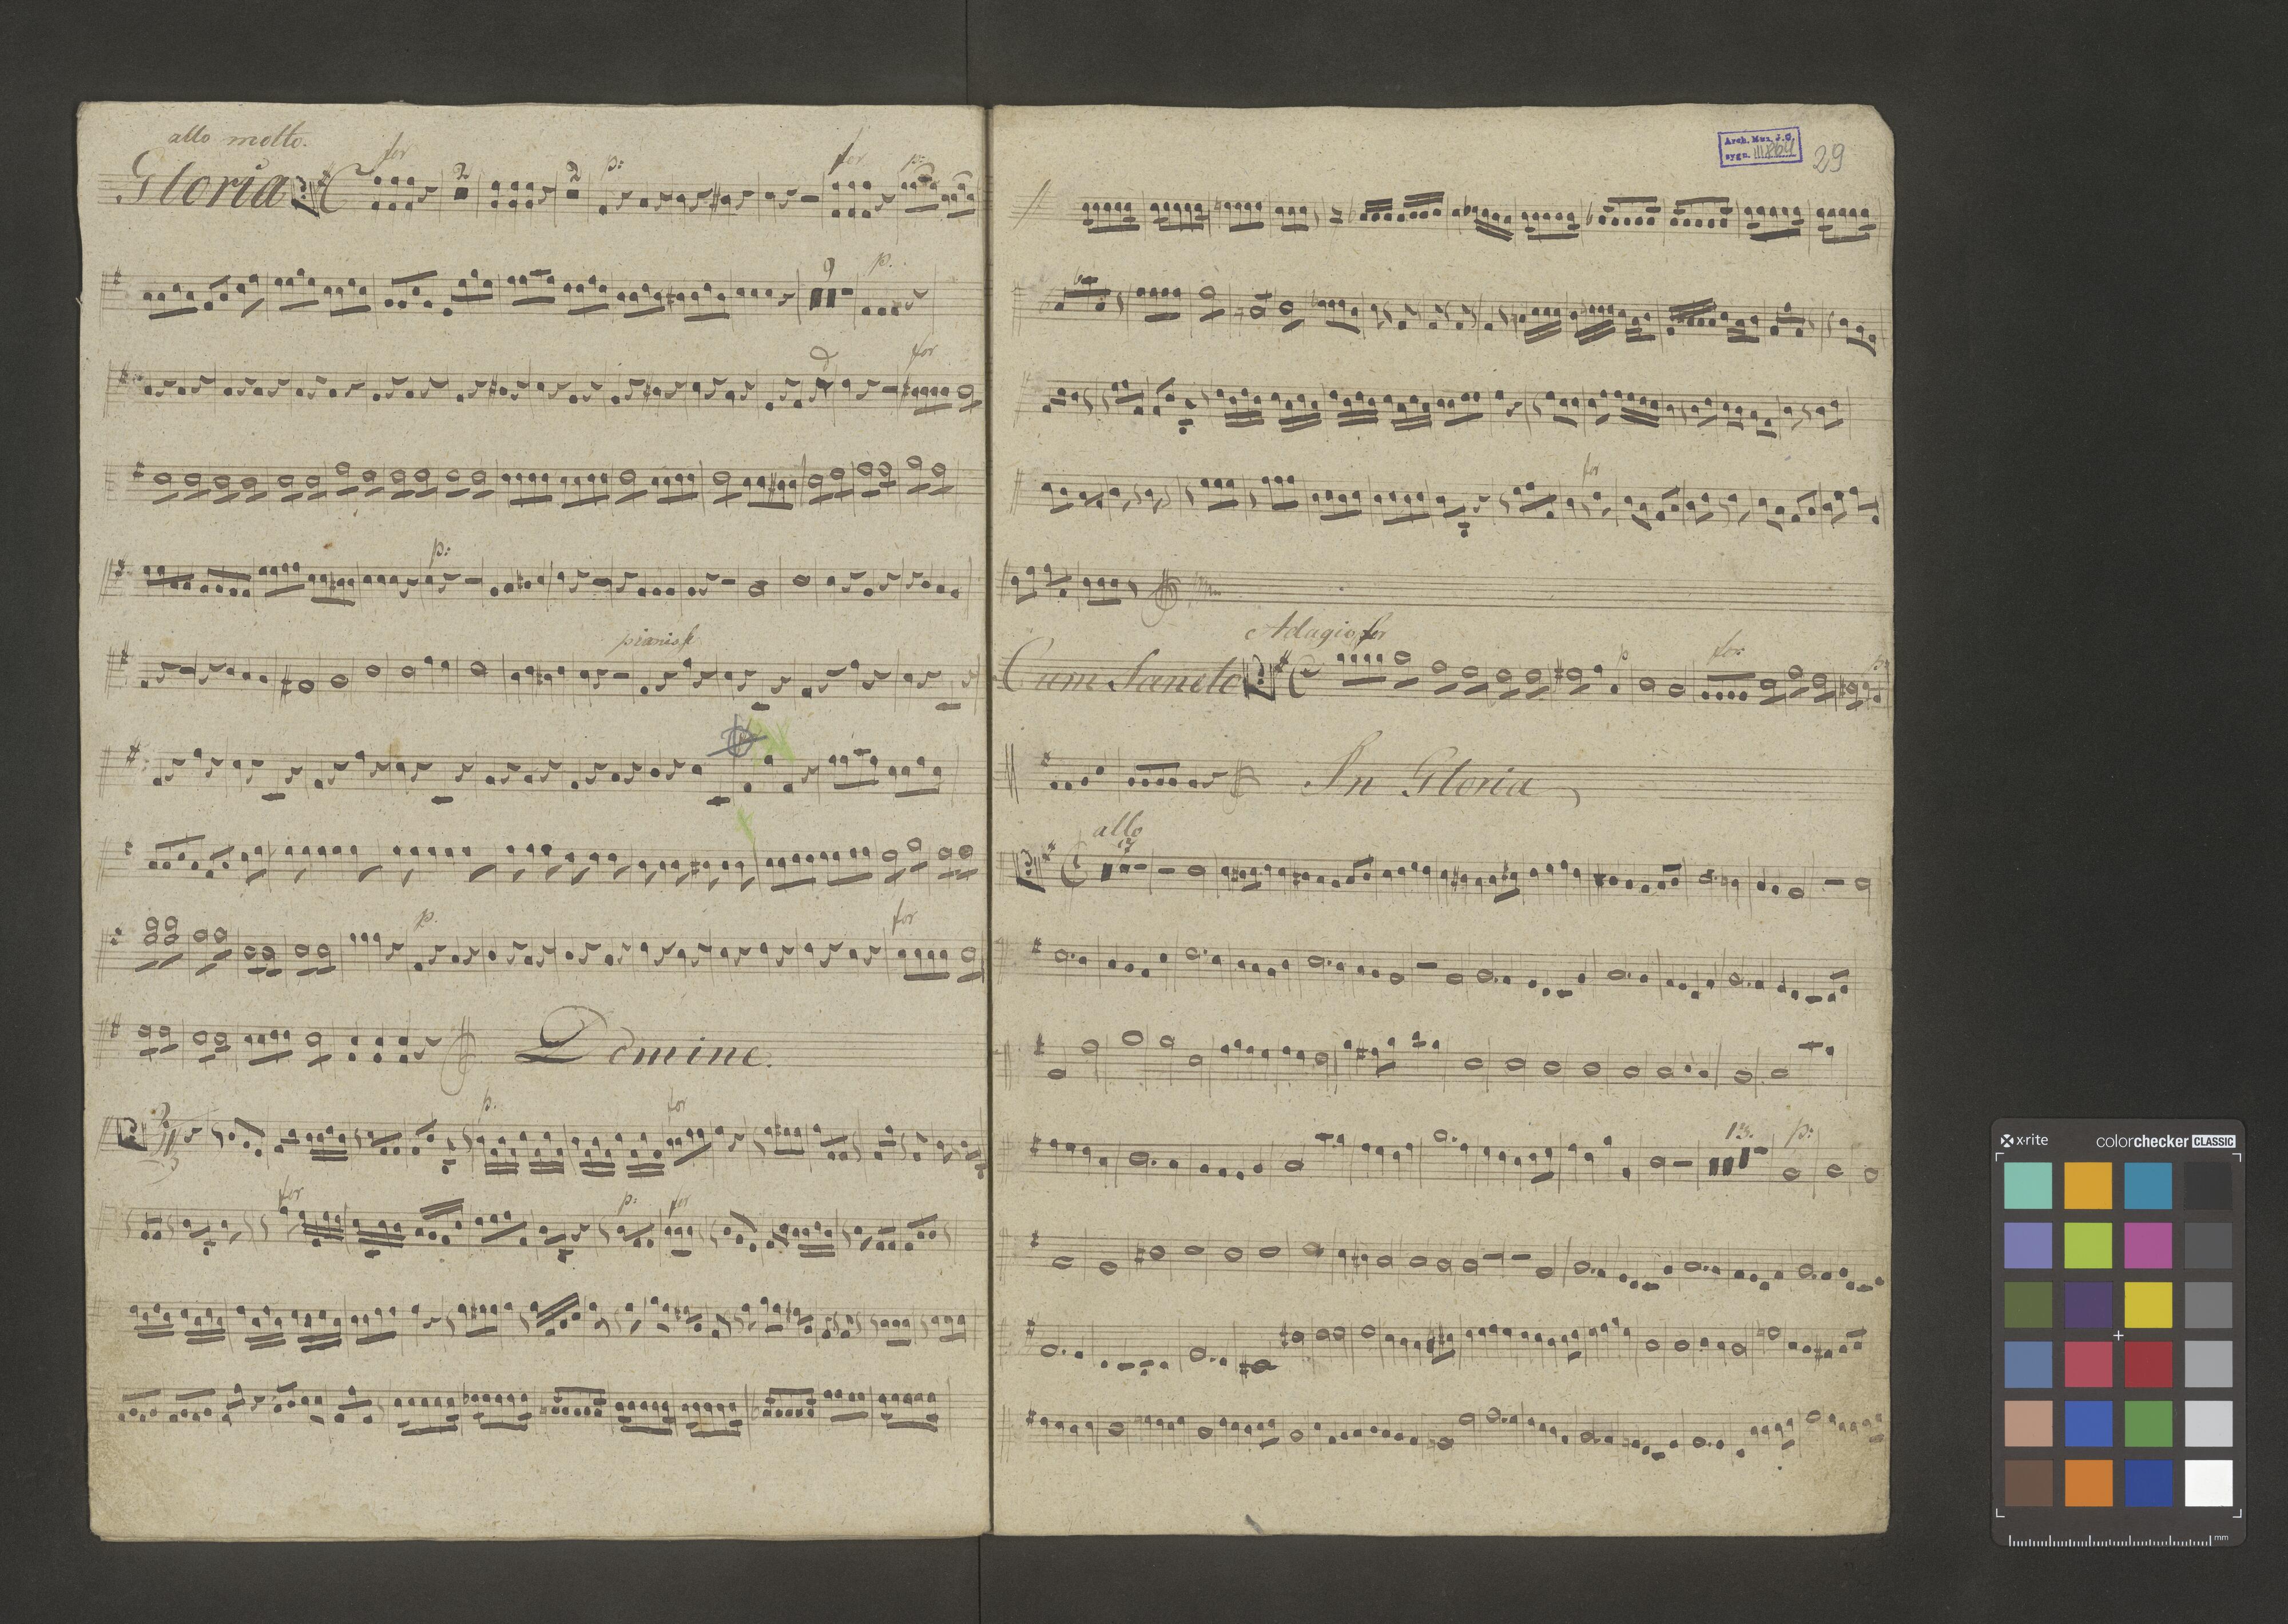 allo molto.
Gloria
for
2
2
p:
for
p:
9
p.
for
p:
pianiss
p.
for
Domine.
p.
for
for
p:
for
Arch. Muz. J. G.
sygn. III
29
for
Adagio for
Cum Sancto
p
for
p:
In Gloria
allo
13.
p:
x·rite
colorchecker CLASSIC
mm